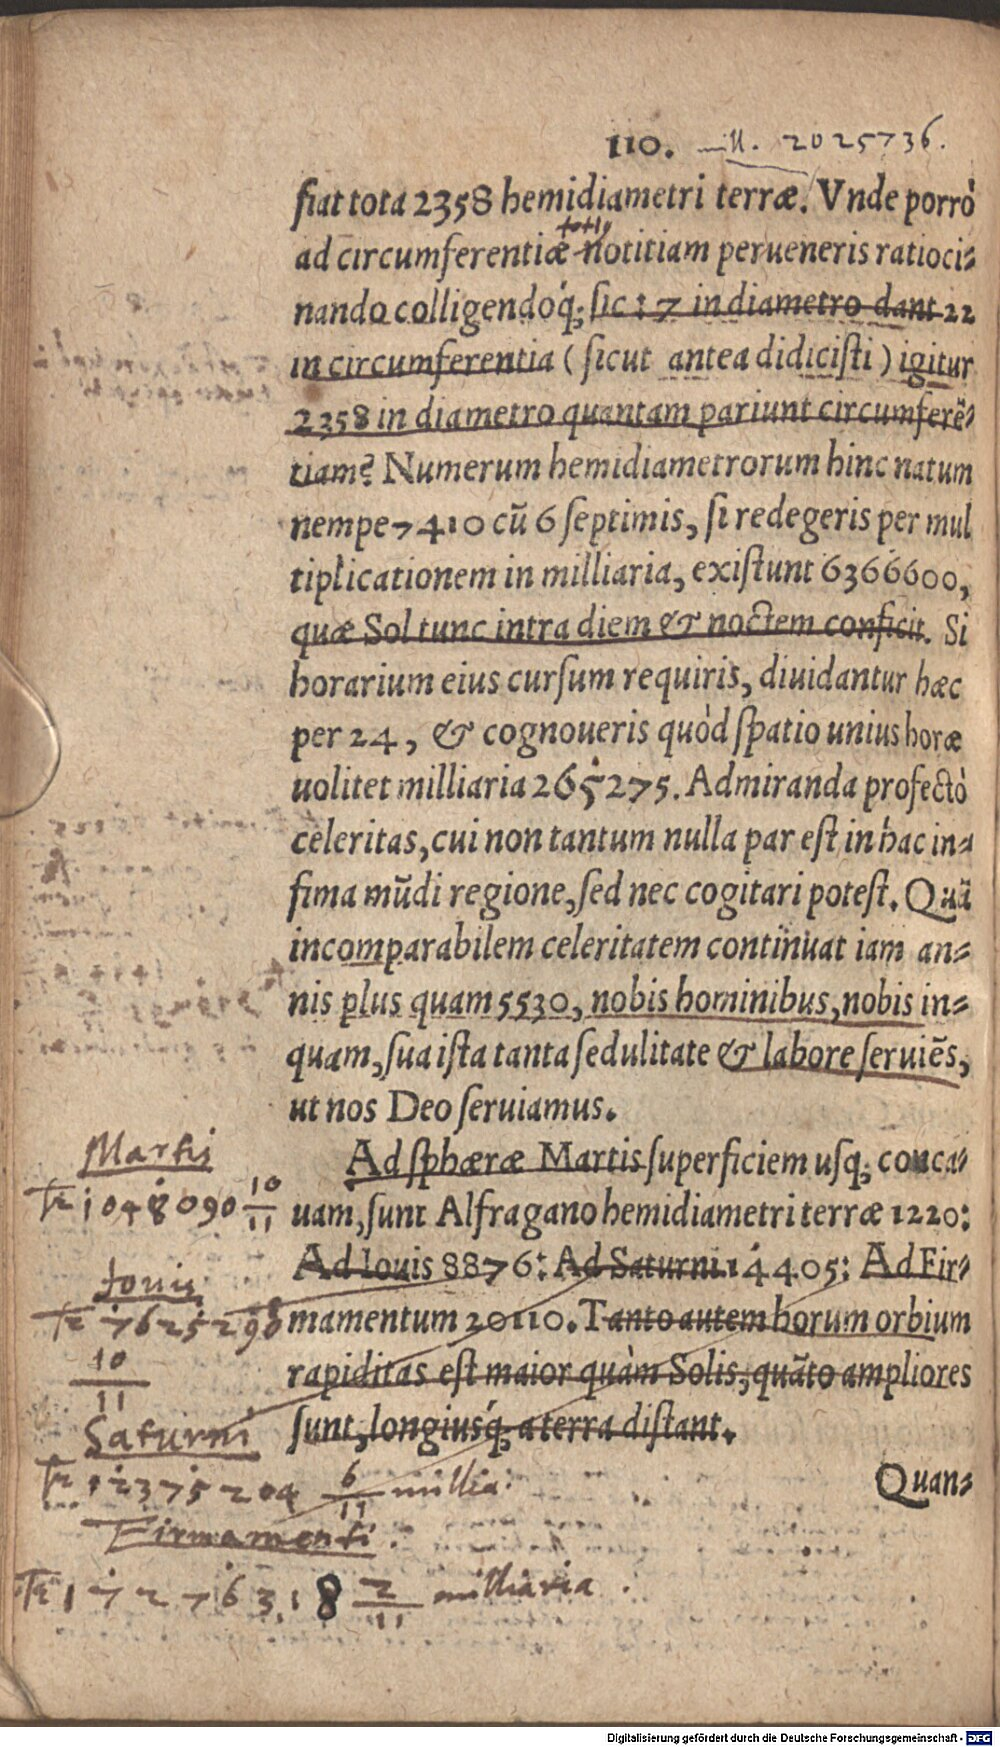 110. mill. 2025736.
fiat tota 2358 hemidiametri terræ. Vnde porrò
toti9
ad circumferentiæ notitiam perueneris ratioci⸗
nando colligendoq́; sic : 7 in diametro dant 22
in circumferentia ( sicut antea didicisti ) igitur
2358 in diametro quantam pariunt circumferē⸗
tiam? Numerum hemidiametrorum hinc natum
nempe 7410 cū 6 septimis, si redegeris per mul
tiplicationem in milliaria, existunt 6366600,
quæ Sol tunc intra diem & noctem conficit. Si
horarium eius cursum requiris, diuidantur hæc
per 24, & cognoueris quòd spatio unius horæ
uolitet milliaria 265275. Admiranda profectò
celeritas, cui non tantum nulla par est in hac in⸗
fima mūdi regione, sed nec cogitari potest. Quā
incomparabilem celeritatem continuat iam an⸗
nis plus quam 5530, nobis hominibus, nobis in⸗
quam, sua ista tanta sedulitate & labore seruiēs,
ut nos Deo seruiamus.
Ad sphæræ Martis superficiem usq; conca⸗
uam, sunt Alfragano hemidiametri terræ 1220:
Ad Iouis 8876: Ad Saturni 14405: Ad Fir⸗
mamentum 20110. Tanto autem horum orbium
rapiditas est maior quàm Solis, quāto ampliores
sunt, longiusq́; a terra distant.
Quan⸗
Martis
1048090 10/11
Iouis
7625290
10/11
Saturni
12375204 6/11 millia.
Firmamenti.
17276318 2/11 milliaria.
Digitalisierung gefördert durch die Deutsche Forschungsgemeinschaft - DFG